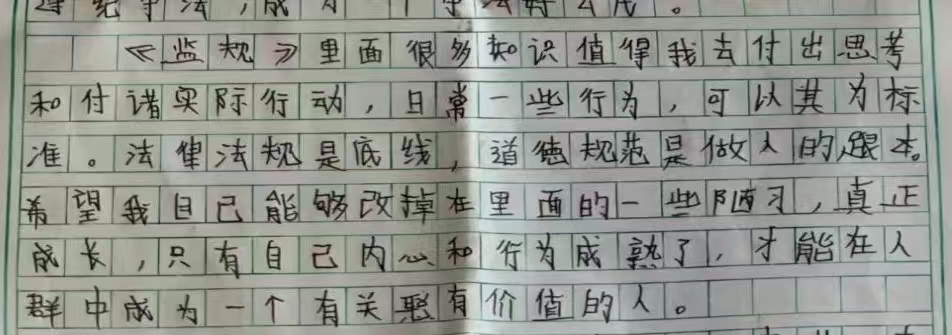 遵纪守法，成为一个守法好公民。
《监规》里面很多知识值得我去付出思考
和付诸实际行动，日常一些行为，可以其为标
准。法律法规是底线，道德规范是做人的跟本。
希望我自己能够改掉在里面的一些陋习，真正
成长，只有自己内心和行为成熟了，才能在人
群中成为一个有关聚有价值的人。